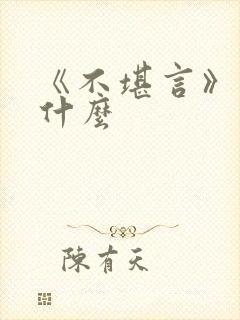 《不堪言》
什麼
陳有天